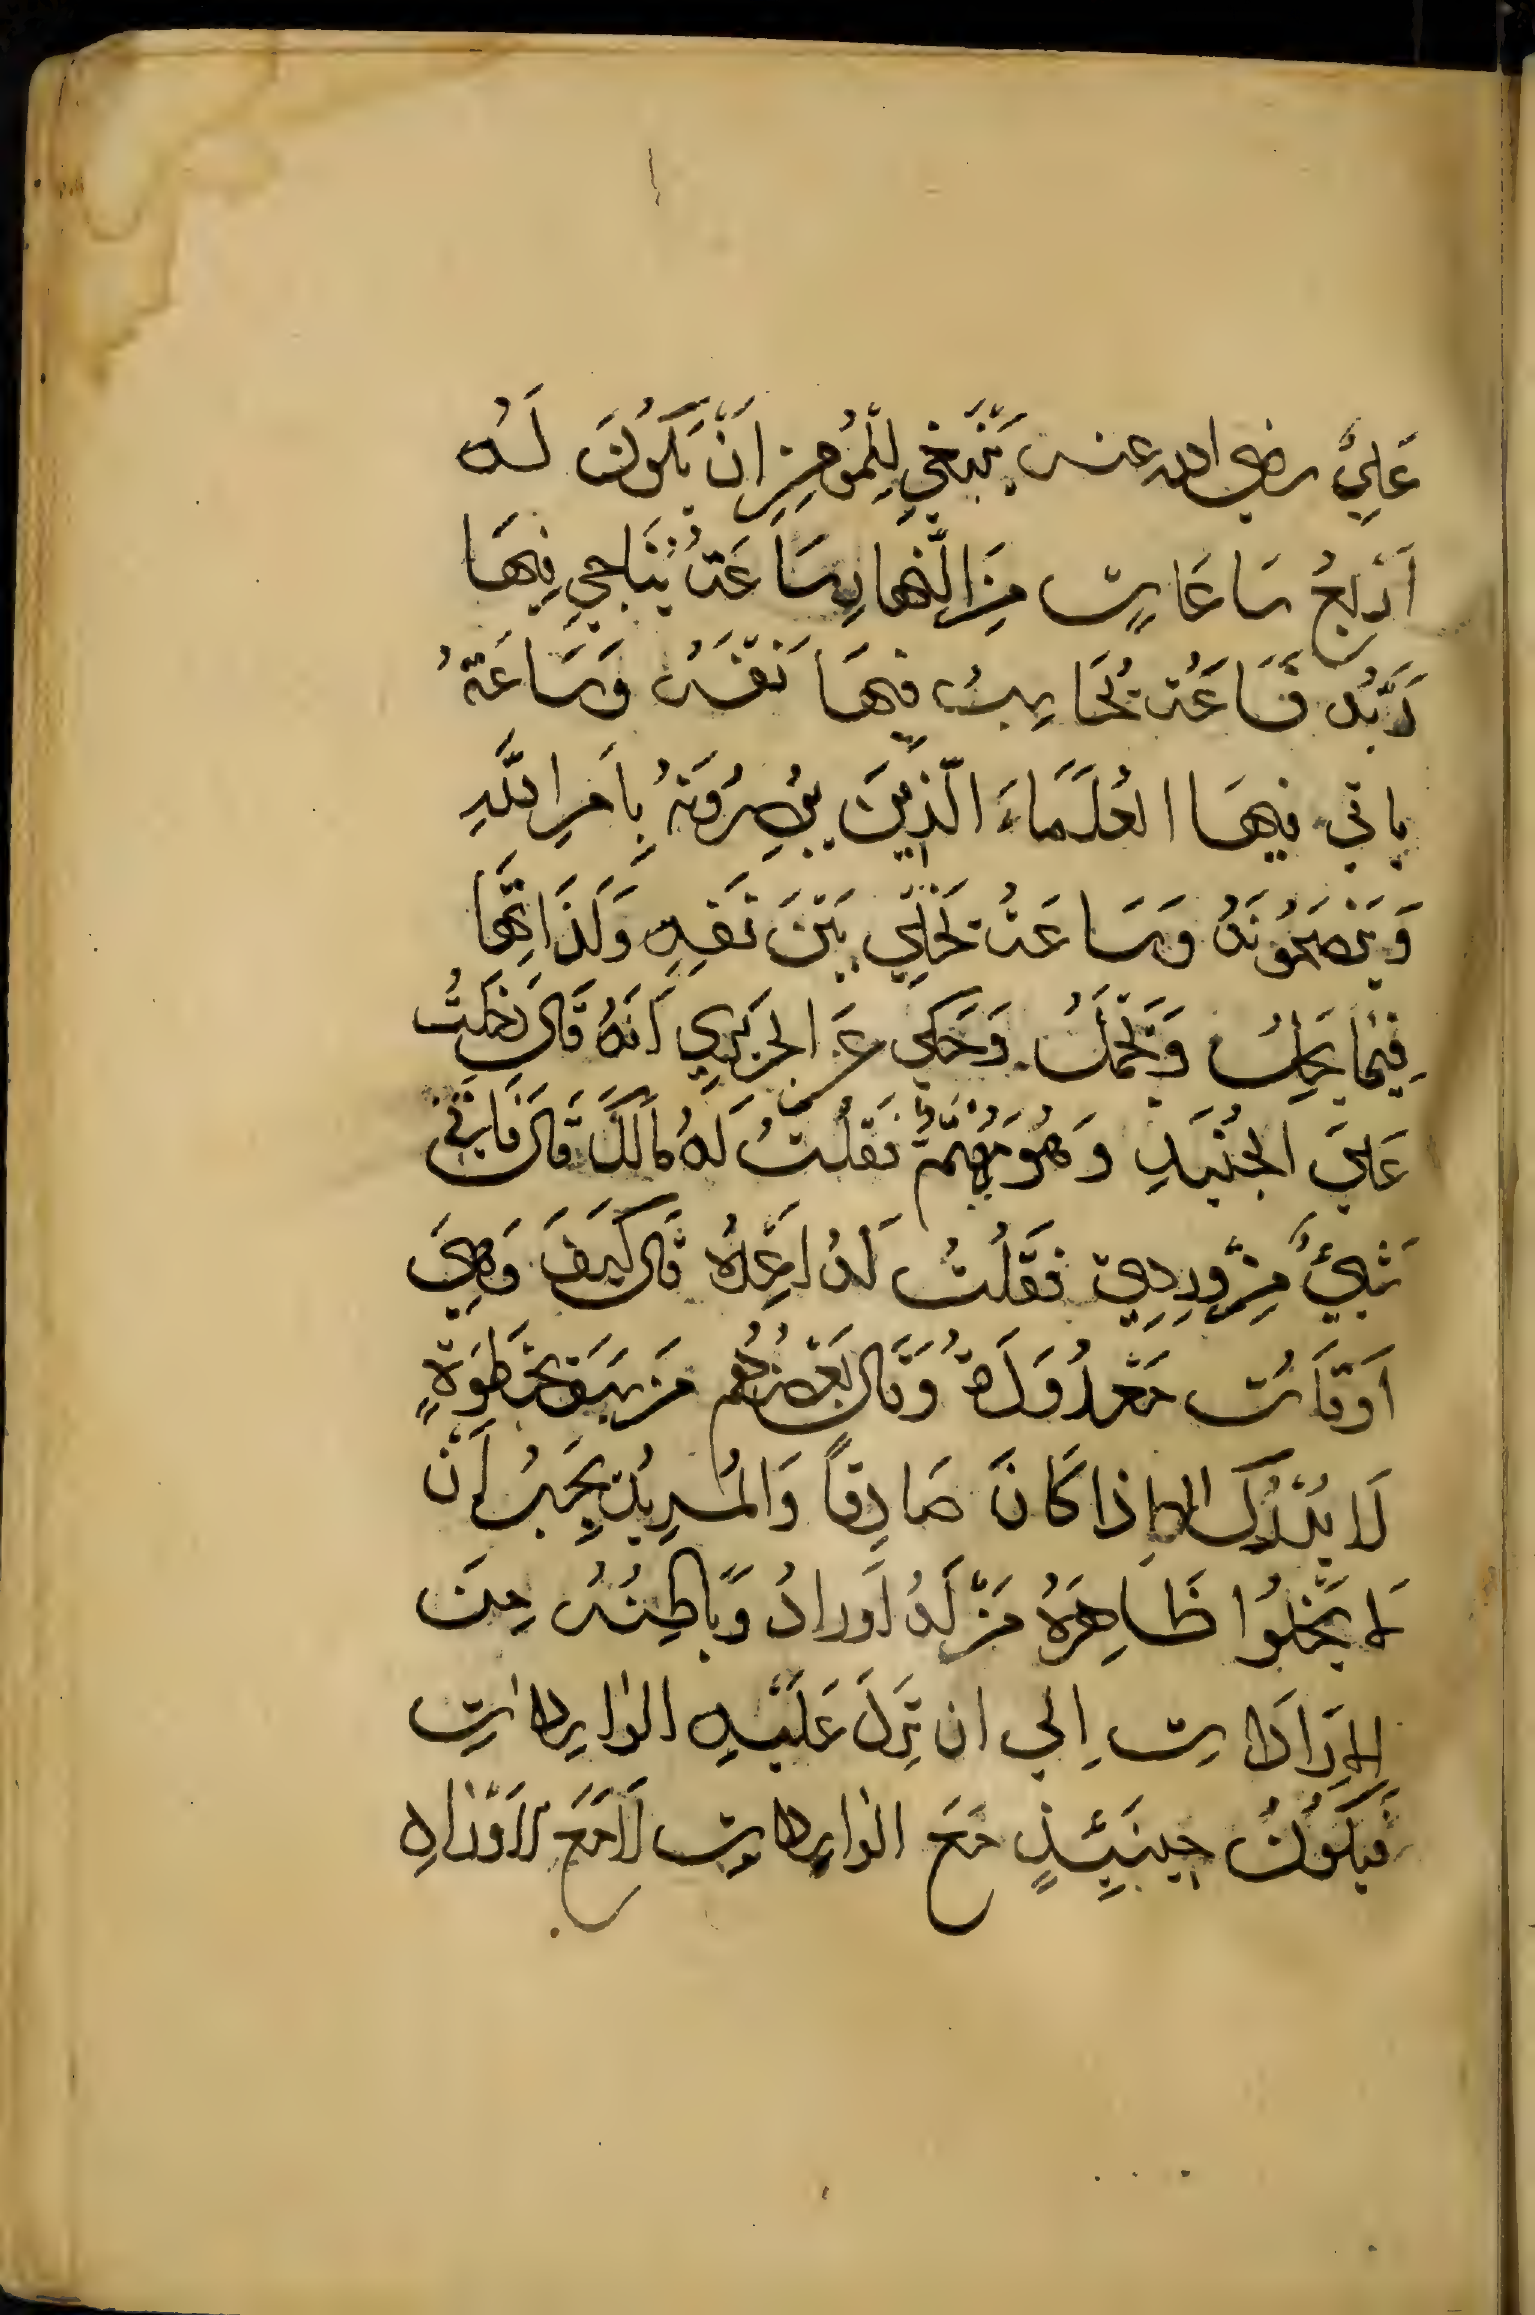 عَلِيٍّ رضي الله عنه يَنْبَغِي لِلْمُومِنِ اَنْ يَكُونَ لَهُ
اَرْبَعُ سَاعَاتٍ مِنَ النَّهارِ سَاعَةٌ يُنَاجِي فِيهَا
رَبَّهُ وَسَاعَةٌ يُحَاسِبُ فِيهَا نَفْسَهُ وَسَاعَةٌ
ياتي فيهَا العُلَمَاءَ الَّذِينَ يُبْصِرُونَهُ بِاَمْرِ اللَّهِ
وَيَنْصَحُونَهُ وَسَاعَةٌ يُخَلِّي بَيْنَ نَفْسِهِ وَلَذَاتِهَا
فِيمَا يَحِلُّ وَيَجْمُلُ وَحُكِيَ عَنِ الجَرِيرِي اَنَّهُ قَالَ دَخَلْتُ
عَلَي الجُنَيْدِ وَهُوَ مُهْتَمٌّ فَقُلْتُ لَهُ مَالَكَ قَالَ فَاتَنِي
شَيْءٌ مِنْ وِرْدِي فَقُلْتُ لَهُ اَعِدْهُ قَالَ كَيْفَ وَهِيَ
اَوْقَاتٌ مَعْدُودَةٌ وَقَالَ بَعْضُهُم مَنْ سَبَقَ بِخَطْوَةٍ
لَا يُدْرَكُ اِلا اِذا كَانَ صَادِقاً وَالمُرِيدُ يَجِبُ اَنْ
لا يَخْلُوا ظَاهِرَهُ مِنَ الاَورادِ وَبَاطِنُهُ مِنَ
الاِرَادَاتِ اِلي ان تَرِدَ عَلَيْهِ الوَارِدَاتِ
فَيَكُونُ حِينَئِذٍ مَعَ الوَارِدَاتِ لَا مَعَ الاَوْرَادِ